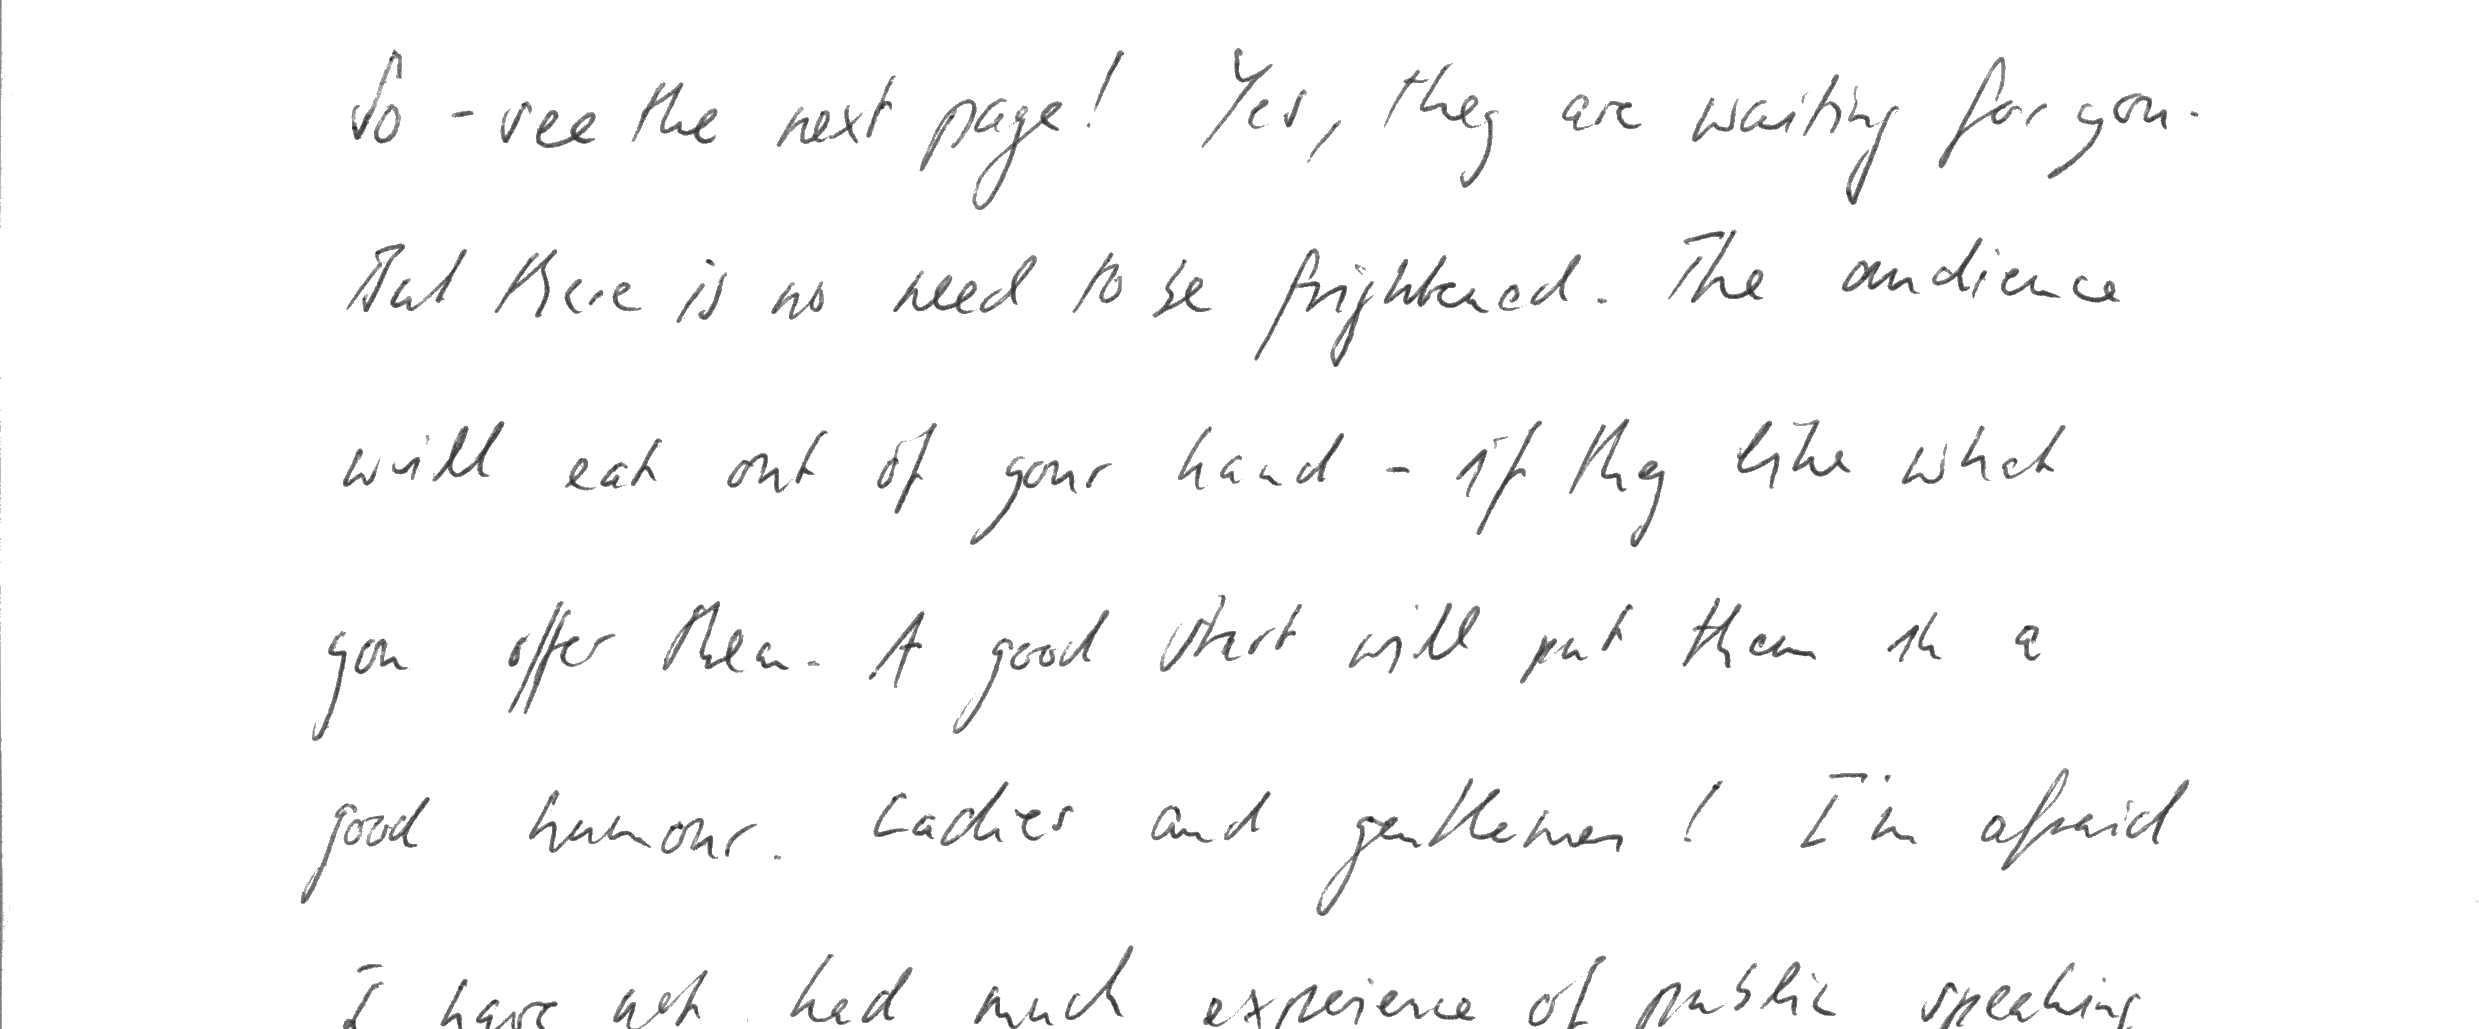 So - see the next page! Yes, they are waiting for you.
But there is no need to be frightened. The audience
will eat out of your hand - if they like what
you offer them. A good start will put them in a
good humour. Ladies and gentlemen! I'm afraid
I have not had much experience of public speaking